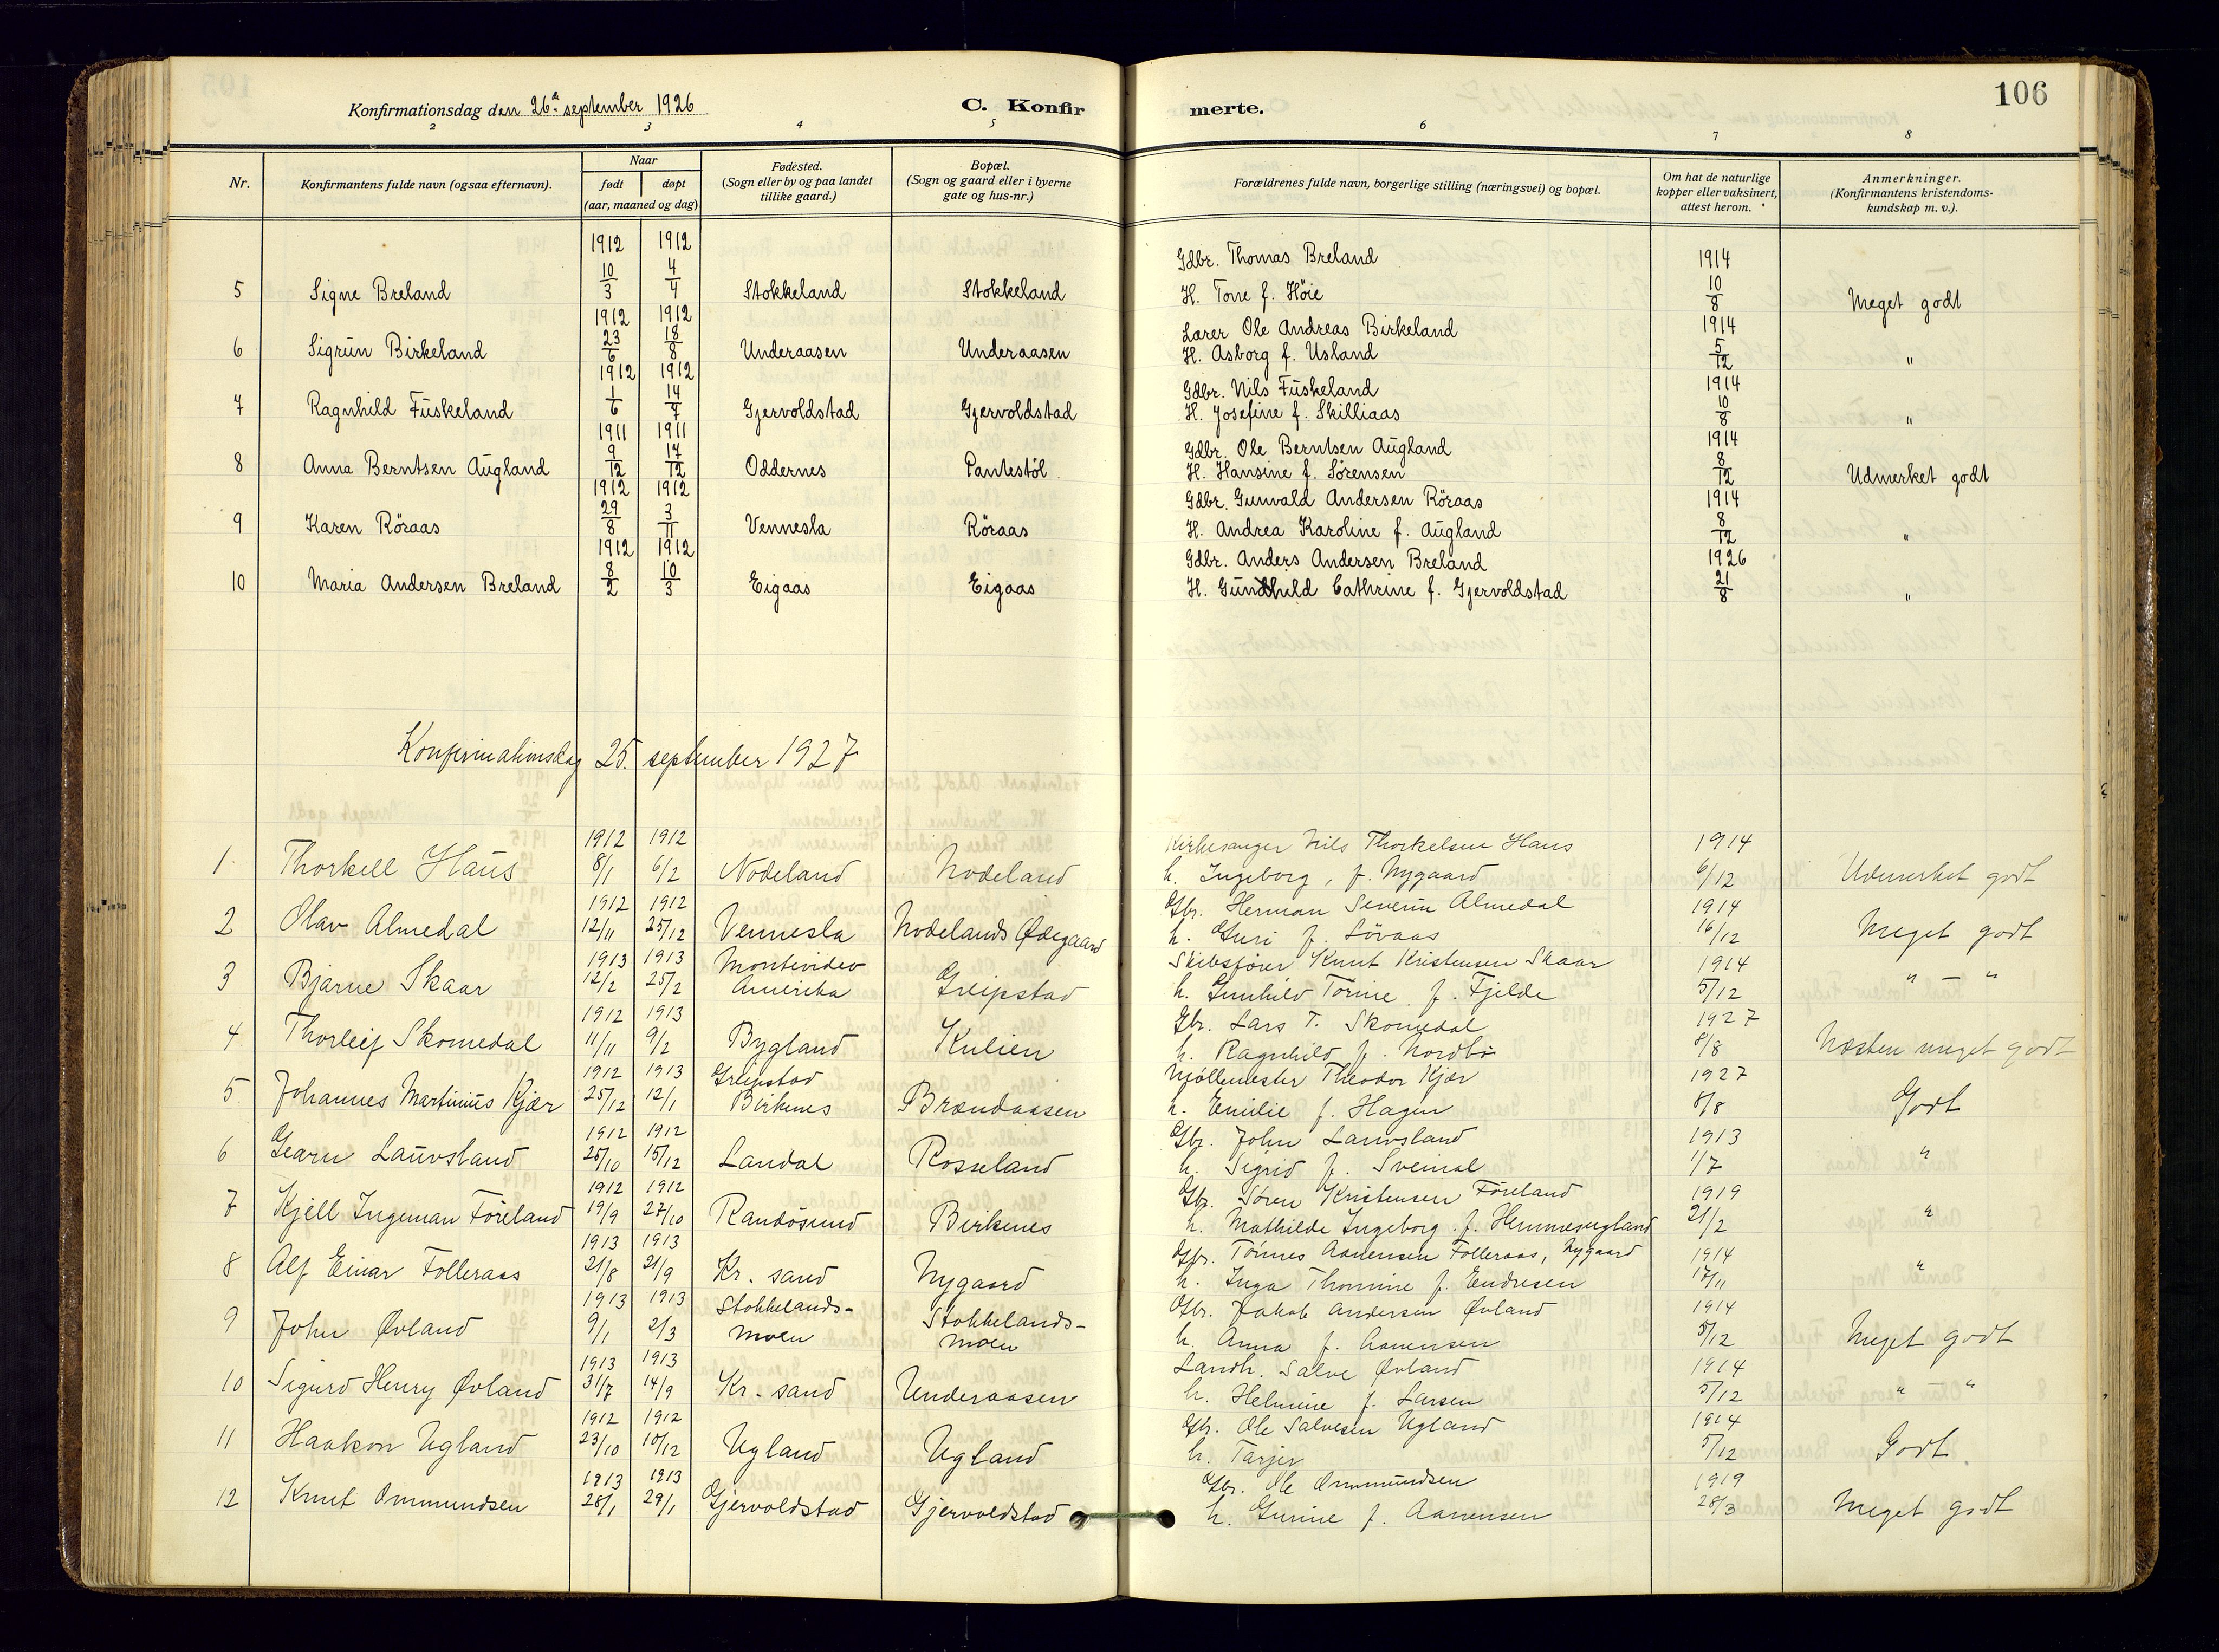 106
Konfirmationsdag den 26de september 1926
C. Konfirmerte.
2 3 4 5 6 7 8
Nr. Konfirmantens fulde navn (ogsaa efternavn). Naar født døpt (aar, maaned og dag) Fødested. (Sogn eller by og paa landet tillike gaard.) Bopæl. (Sogn og gaard eller i byerne gate og hus-nr.) Forældrenes fulde navn, borgerlige stilling (næringsvei) og bopæl. Om hat de naturlige kopper eller vaksinert, attest herom. Anmerkninger. (Konfirmantens kristendoms-kundskap m. v.).
1912 1912 Gdbr. Thomas Breland 1914
5 Signe Breland 10/3 4/4 Stokkeland Stokkeland H. Tone f. Höie 10/8 Meget godt
1912 1912 Lærer Ole Andreas Birkeland 1914
6 Sigrün Birkeland 23/6 18/8 Underaasen Underaasen H. Asborg f. Usland 5/12 "
1912 1912 Gdbr. Nils Füskeland 1914
7 Ragnhild Füskeland 1/6 14/7 Gjervoldstad Gjervoldstad H. Josefine f. Skilliaas 10/8 "
1911 1911 Gdbr. Ole Berntsen Aügland 1914
8 Anna Berntsen Aügland 9/12 17/12 Oddernes Pantestöl H. Hansine f. Sörensen 8/12 Udmerket godt
1912 1912 Gdbr. Gunvald Andersen Röraas 1914
9 Karen Röraas 29/8 3/11 Vennesla Röraas H. Andrea Karoline f. Aügland 8/12 "
1912 1912 Gdbr. Anders Andersen Breland 1926
10 Maria Andersen Breland 8/2 10/3 Eigaas Eigaas H. Günhild Cathrine f. Gjervoldstad 21/8 "
Konfirmationsdag 25. september 1927
1912 1912 Kirkesanger Nils Thorkelsen Haus 1914
1 Thorkell Haüs 8/1 6/2 Nodeland Nodeland h. Ingeborg, f. Nygaard 6/12 Udmerket godt
1912 1912 Gbr. Herman Severin Almedal 1914
2 Olav Almedal 12/11 25/12 Vennesla Nodelands Ødegaard h. Guri f. Lövaas 16/12 Meget godt
1913 1913 Montevideo Skibsfører Knut Kristensen Skaar 1914
3 Bjarne Skaar 12/2 25/2 Amerika Greipstad h. Gunhild Torine f. Fjelde 5/12 " — "
1912 1913 Gbr. Lars T. Skomedal 1927
4 Thorleif Skomedal 11/11 9/2 Bygland Kulien h. Ragnhild f. Nordbö 8/8 Næsten meget godt
1912 1913 Greipstad Møllemester Theodor Kjær 1927
5 Johannes Martinius Kjær 25/12 12/1 Birkenes Brændaasen h. Emilie f. Hagen 8/8 Godt
1912 1912 Gbr. John Lauvsland 1913
6 Gearn Laüvsland 25/10 15/12 Landal Rosseland h. Sigrid f. Sveinal 1/7 "
1912 1912 Gbr. Sören Kristensen Föreland 1919
7 Kjell Ingeman Föreland 19/9 27/10 Randösund Birkenes h. Mathilde Ingeborg f. Hemmesugland 21/2 "
1913 1913 Gbr. Tönnes Aanensen Folleraas, Nygaard 1914
8 Alf Einar Folleraas 21/8 21/9 Kr. sand Nygaard h. Inga Thomine f. Endresen 17/11 "
1913 1913 Stokkelands- Stokkelands- Gbr. Jakob Andersen Øvland 1914
9 John Øvland 9/1 2/3 moen moen h. Anna f. Aanensen 5/12 Meget godt
1913 1913 Landh. Salve Øvland 1914
10 Sigurd Henry Øvland 31/7 14/9 Kr. sand Underaasen h. Helmine f. Larsen 5/12 " — "
1912 1912 Gbr. Ole Salvesen Ugland 1914
11 Haakon Ugland 23/10 10/12 Ugland Ugland h. Tarjer 5/12 Godt
1913 1913 Gbr. Ole Ommundsen 1919
12 Knut Ommundsen 28/1 29/1 Gjervoldstad Gjervoldstad h. Gurine f. Aanensen 28/3 Meget godt